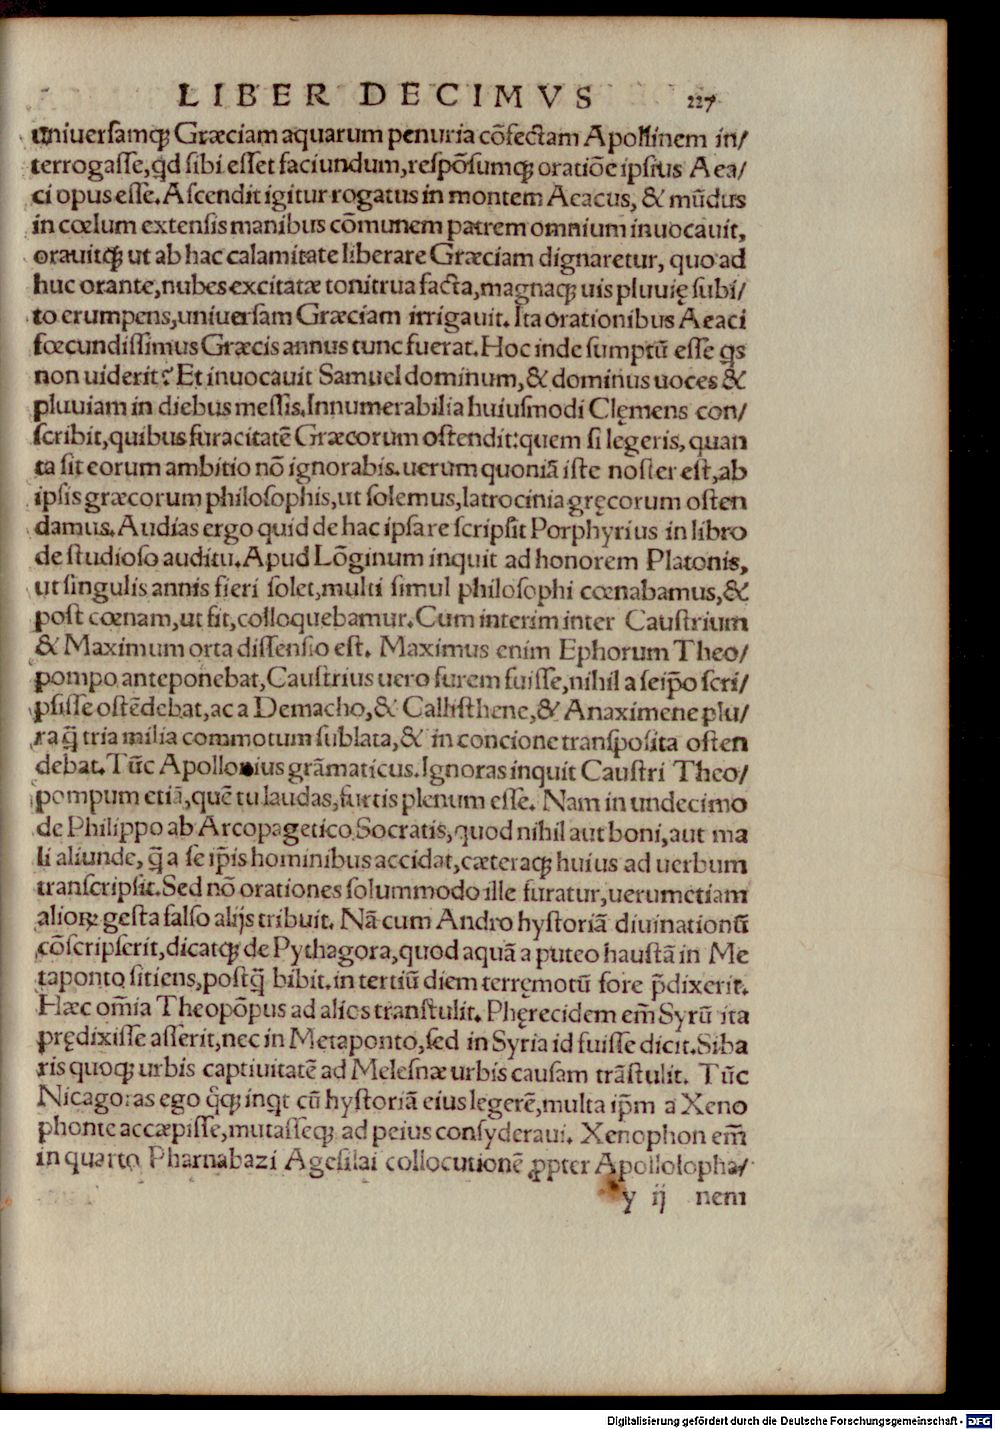 LIBER DECIMVS 227
uniuersamqꝫ Græciam aquarum penuria cõfectam Apollinem in/
terrogasse, qd sibi esset faciundum, respõsumqꝫ oratiõe ipsius Aea/
ci opus esse. Ascendit igitur rogatus in montem Aeacus, & mũdus
in cœlum extensis manibus cõmunem patrem omnium inuocauit,
orauitqꝫ ut ab hac calamitate liberare Græciam dignaretur, quo ad
huc orante, nubes excitatæ tonitrua facta, magnaqꝫ uis pluuię subi/
to erumpens, uniuersam Græciam irrigauit. Ita orationibus Aeaci
fœcundissimus Græcis annus tunc fuerat. Hoc inde sumptũ esse qs
non uiderit? Et inuocauit Samuel dominum, & dominus uoces &
pluuiam in diebus messis. Innumerabilia huiusmodi Clęmens con/
scribit, quibus furacitatẽ Græcorum ostendit: quem si legeris, quan
ta sit eorum ambitio nõ ignorabis. uerum quoniã iste noster est, ab
ipsis græcorum philosophis, ut solemus, latrocinia gręcorum osten
damus. Audias ergo quid de hac ipsa re scripsit Porphyrius in libro
de studioso auditu. Apud Lõginum inquit ad honorem Platonis,
ut singulis annis fieri solet, multi simul philosophi cœnabamus, &
post cœnam, ut fit, colloquebamur. Cum interim inter Caustrium
& Maximum orta dissensio est. Maximus enim Ephorum Theo/
pompo anteponebat, Caustrius uero furem fuisse, nihil a seip̃o scri/
psisse ostẽdebat, ac a Demacho, & Callisthene, & Anaximene plu/
ra q̃ tria milia commotum sublata, & in concione transposita osten
debat. Tũc Apollonius grãmaticus. Ignoras inquit Caustri Theo/
pompum etiã, quẽ tu laudas, furtis plenum esse. Nam in undecimo
de Philippo ab Arcopagetico Socratis, quod nihil aut boni, aut ma
li aliunde, q̃ a se ip̃is hominibus accidat, cæteraqꝫ huius ad uerbum
transcripsit. Sed nõ orationes solummodo ille furatur, uerumetiam
alioꝝ gesta falso alijs tribuit. Nã cum Andro hystoriã diuinationũ
cõscripserit, dicatqꝫ de Pythagora, quod aquã a puteo haustã in Me
taponto sitiens, postq̃ bibit. in tertiũ diem terręmotũ fore p̃dixerit.
Hæc om̃ia Theopõpus ad alios transtulit. Phęrecidem em̃ Syrũ ita
prędixisse asserit, nec in Metaponto, sed in Syria id fuisse dicit. Siba
ris quoqꝫ urbis captiuitatẽ ad Melesnæ urbis causam trãstulit. Tũc
Nicagoras ego q̃qꝫ inqt cũ hystoriã eius legerẽ, multa ip̃m a Xeno
phonte accæpisse, mutasseqꝫ ad peius consyderaui. Xenophon em̃
in quarto Pharnabazi Agesilai collocutionẽ ꝓpter Apollolopha/
y ij nem
Digitalisierung gefördert durch die Deutsche Forschungsgemeinschaft - DFG